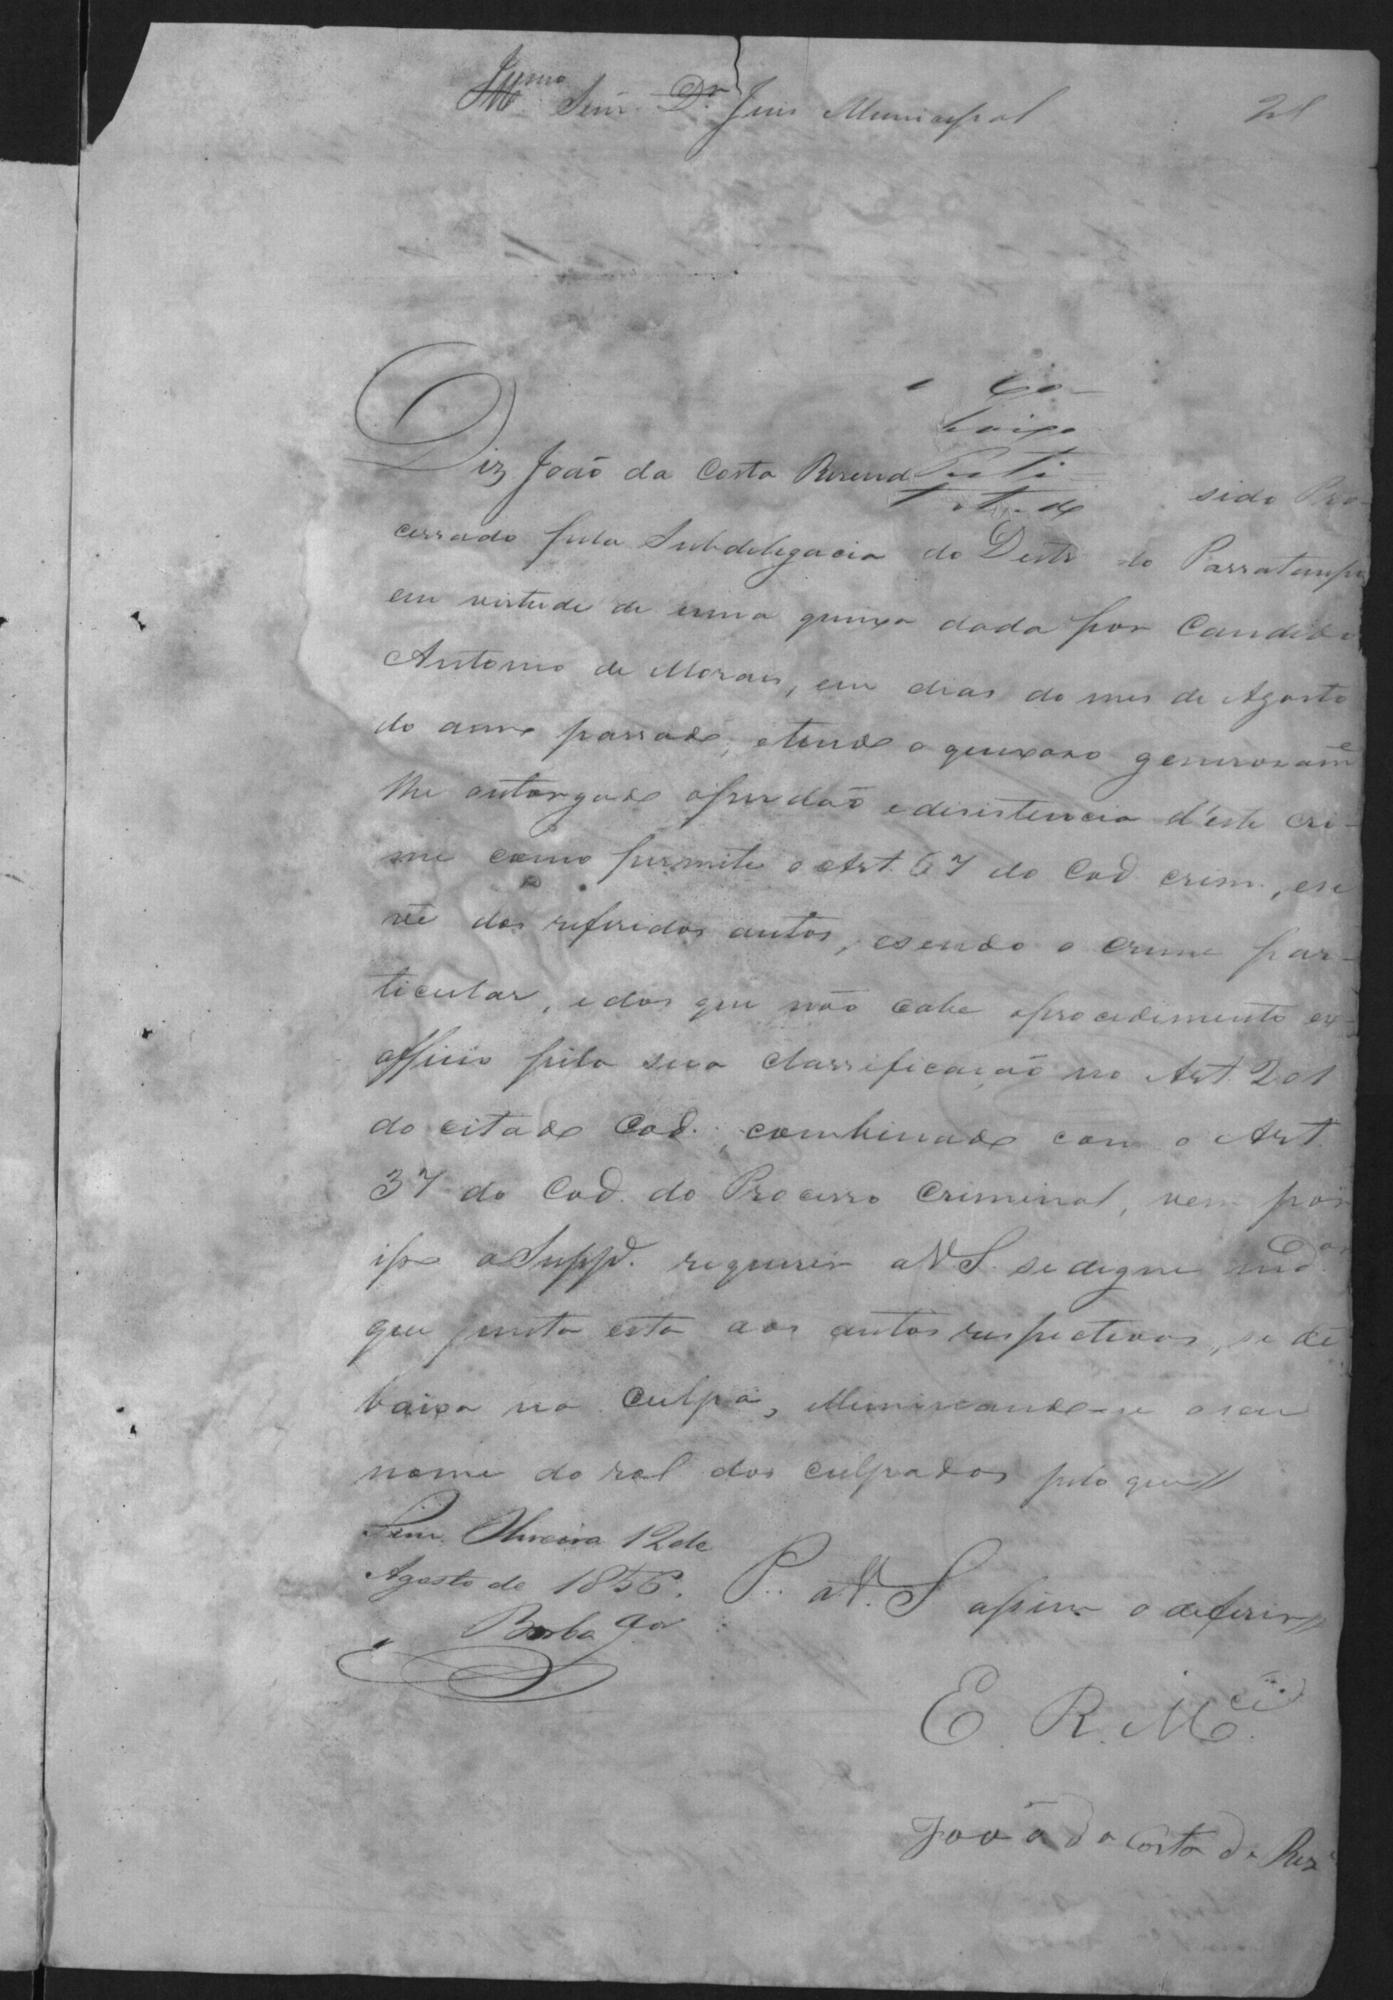 Illmo Senr. Dr. Juis Municipal
21
Diz João da Costa Resend sido Pro-
cessado pela Subdelegacia do Destr do Passatempo
em virtude de uma queixa dada por Candido
Antonio de Moraes, em dias do mes de Agosto
do anno passado, etendo o queixoso generosame
lhe outorgado operdaõ edisistencia d'este cri-
me como permite o Art. 67 do Cod. crim.,
dos referidos autos, esendo o crime par-
ticular, edos que não cabe oprocedimento ex
officio pela sua classificacaõ no Art. 201
do citado Cod. combinado com o Art.
37 do Cod. do Processo Criminal, vem por
isso o Suppe. requerer aV.S. sedigne mdar
que junta esta aos autos respectivos, se dê
baixa na culpa, eliminando-se oseu
nome do rol dos culpados pelo que//
Sim. Oliveira 12 de
Agosto de 1856.
Barboza
P. aV.S assim o deferir//
E. R. Mce
João da Costa de Reze